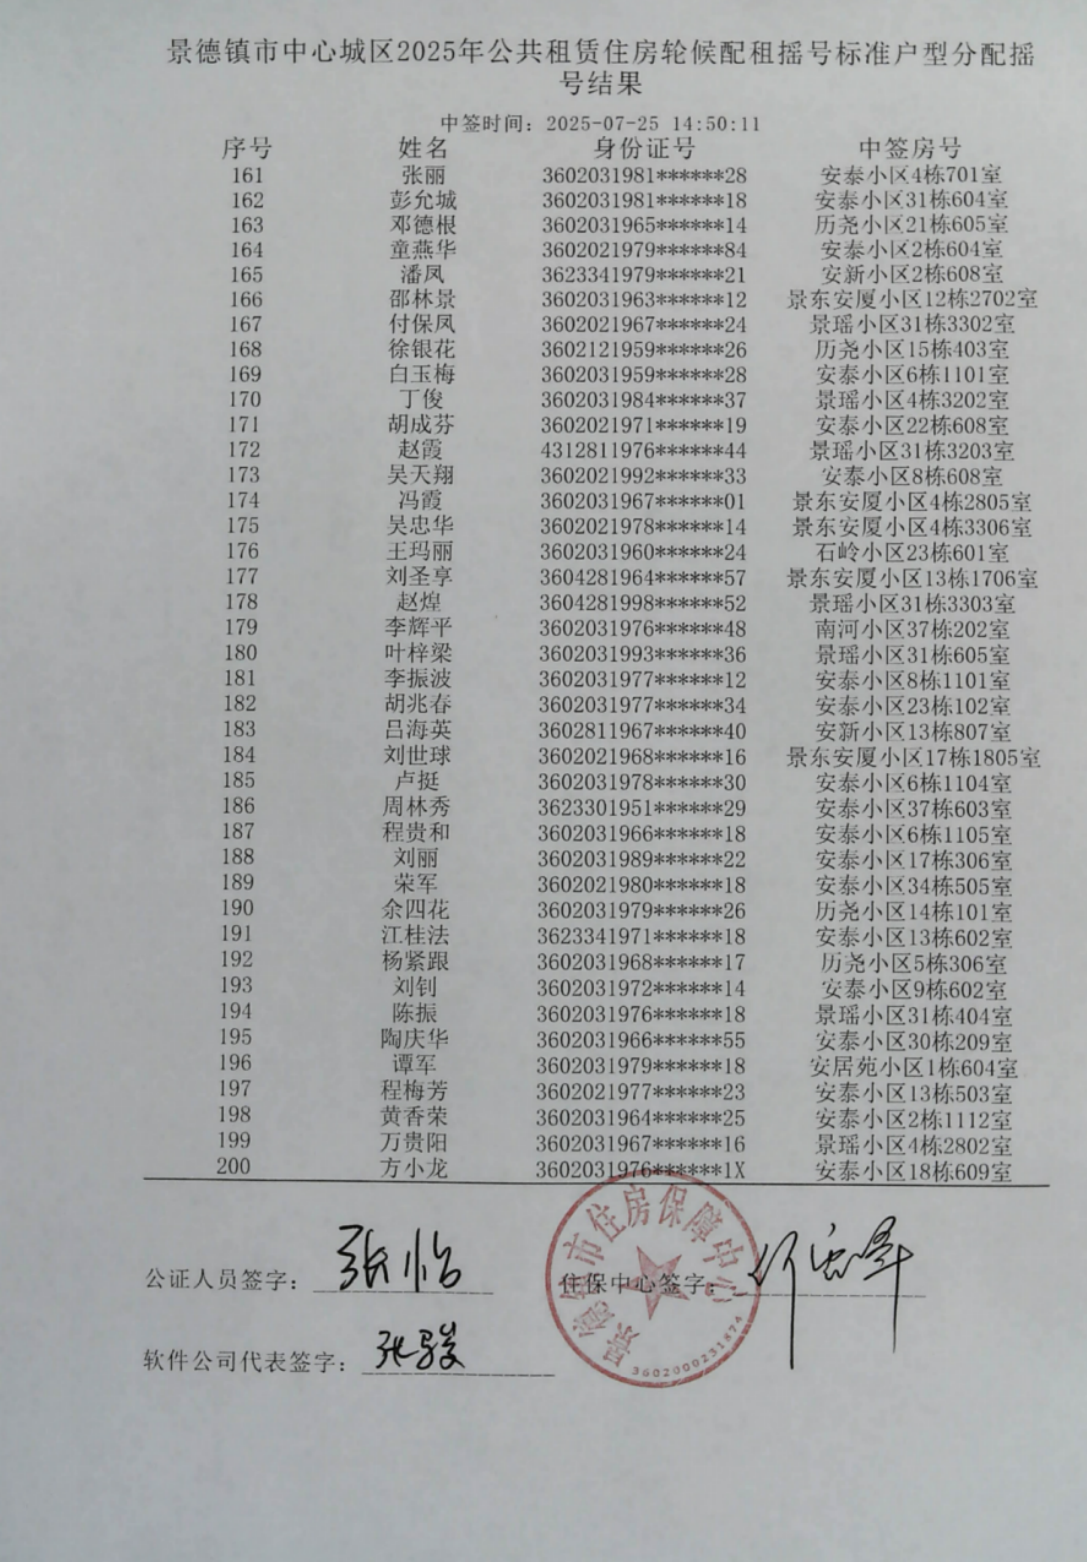 景德镇市中心城区2025年公共租赁住房轮候配租摇号标准户型分配摇
号结果
中签时间：2025-07-25 14:50:11
序号 姓名 身份证号 中签房号
161 张丽 3602031981******28 安泰小区4栋701室
162 彭允城 3602031981******18 安泰小区31栋604室
163 邓德根 3602031965******14 历尧小区21栋605室
164 童燕华 3602021979******84 安泰小区2栋604室
165 潘凤 3623341979******21 安新小区2栋608室
166 邵林景 3602031963******12 景东安厦小区12栋2702室
167 付保凤 3602021967******24 景瑶小区31栋3302室
168 徐银花 3602121959******26 历尧小区15栋403室
169 白玉梅 3602031959******28 安泰小区6栋1101室
170 丁俊 3602031984******37 景瑶小区4栋3202室
171 胡成芬 3602021971******19 安泰小区22栋608室
172 赵霞 4312811976******44 景瑶小区31栋3203室
173 吴天翔 3602021992******33 安泰小区8栋608室
174 冯霞 3602031967******01 景东安厦小区4栋2805室
175 吴忠华 3602021978******14 景东安厦小区4栋3306室
176 王玛丽 3602031960******24 石岭小区23栋601室
177 刘圣享 3604281964******57 景东安厦小区13栋1706室
178 赵煌 3604281998******52 景瑶小区31栋3303室
179 李辉平 3602031976******48 南河小区37栋202室
180 叶梓梁 3602031993******36 景瑶小区31栋605室
181 李振波 3602031977******12 安泰小区8栋1101室
182 胡兆春 3602031977******34 安泰小区23栋102室
183 吕海英 3602811967******40 安新小区13栋807室
184 刘世球 3602021968******16 景东安厦小区17栋1805室
185 卢挺 3602031978******30 安泰小区6栋1104室
186 周林秀 3623301951******29 安泰小区37栋603室
187 程贵和 3602031966******18 安泰小区6栋1105室
188 刘丽 3602031989******22 安泰小区17栋306室
189 荣军 3602021980******18 安泰小区34栋505室
190 余四花 3602031979******26 历尧小区14栋101室
191 江桂法 3623341971******18 安泰小区13栋602室
192 杨紧跟 3602031968******17 历尧小区5栋306室
193 刘钊 3602031972******14 安泰小区9栋602室
194 陈振 3602031976******18 景瑶小区31栋404室
195 陶庆华 3602031966******55 安泰小区30栋209室
196 谭军 3602031979******18 安居苑小区1栋604室
197 程梅芳 3602021977******23 安泰小区13栋503室
198 黄香荣 3602031964******25 安泰小区2栋1112室
199 万贵阳 3602031967******16 景瑶小区4栋2802室
200 方小龙 3602031976******1X 安泰小区18栋609室
公证人员签字：张怡 住保中心签字：
软件公司代表签字：张骏
景德镇市住房保障中心
3602000231874